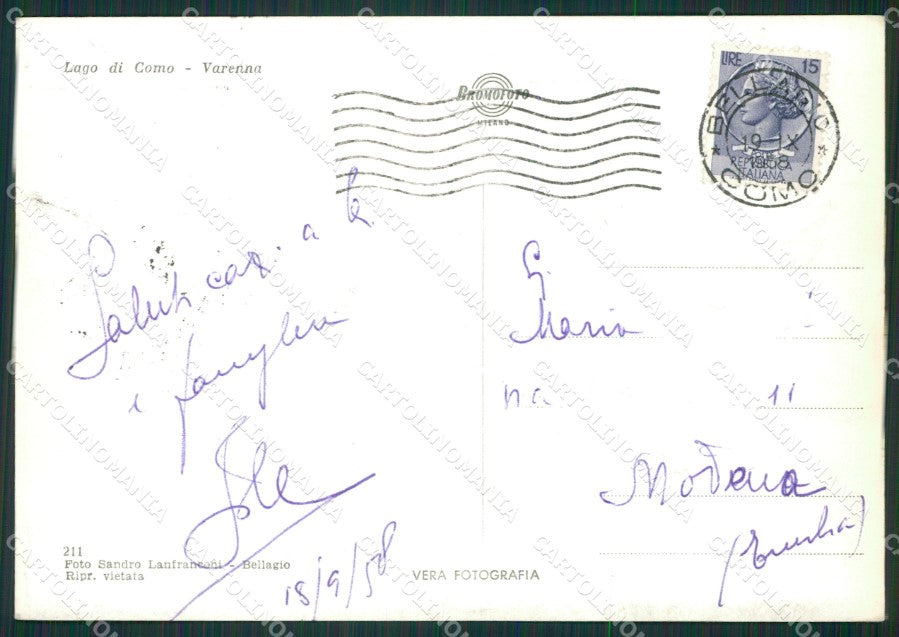 Lago di Como - Varenna
BROMOFOTO
MILANO
LIRE 15
REPUBBLICA
ITALIANA
BELLANO
19-IX
1958
COMO
Saluti cari a te
e famiglia
18/9/58
G.
Maria
na 11
Modena
(Emilia)
211
Foto Sandro Lanfranconi - Bellagio
Ripr. vietata
VERA FOTOGRAFIA
CARTOLINOMANIA